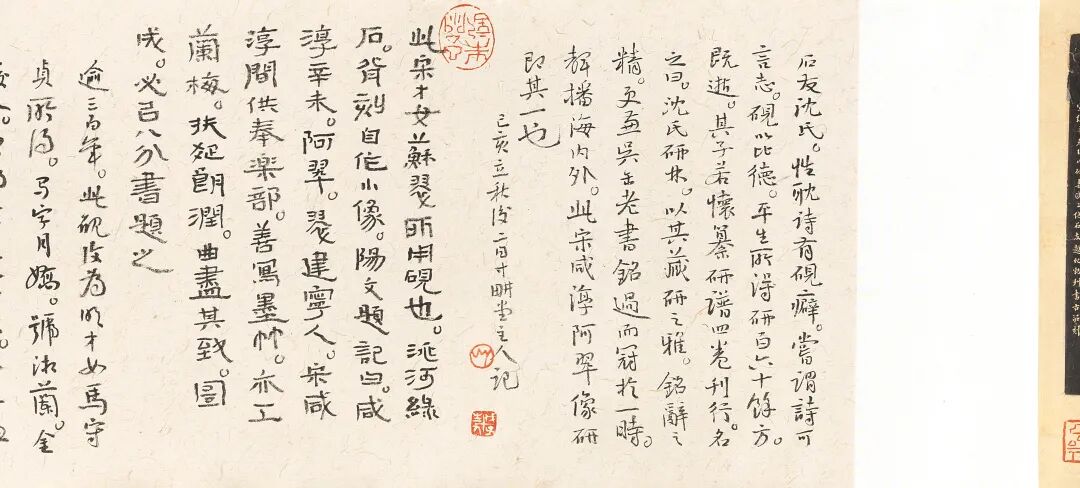 石友沈氏。性耽诗有硯癖。嘗謂詩可
言志。硯以比德。平生所得研百六十餘方。
既逝。其子若懷纂研譜四卷刊行。名
之曰。沈氏研林。以其藏研之雅。銘辭之
精。更兼吳缶老書銘過而冠於一時。
輝播海内外。此宋咸淳阿翠像研
即其一也
己亥立秋後二日十畊堂主人記
此宋才女蘇翠所用硯也。洮河綠
石。背刻自作小像。陽文題記曰。咸
淳辛未。阿翠。翠建寧人。宋咸
淳間供奉樂部。善寫墨竹。亦工
蘭梅。扶疏朗潤。曲盡其致。圖
成。必以八分書題之
逾三百年。此硯後為明才女馬守
貞所得。馬字月嬌。號湘蘭。金